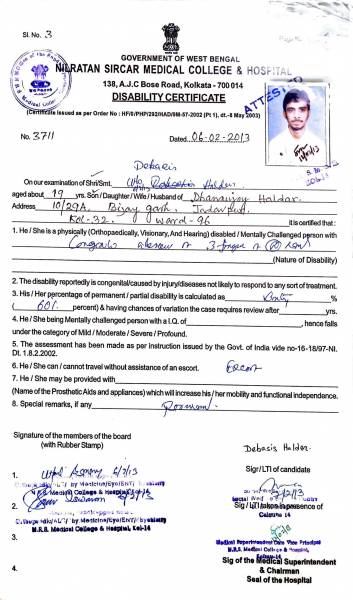 Sl. No. 3
GOVERNMENT OF WEST BENGAL
NILRATAN SIRCAR MEDICAL COLLEGE & HOSPITAL
138, A.J.C Bose Road, Kolkata - 700 014
DISABILITY CERTIFICATE
ATTESTED
No. 3711
Dated 06-02-2013
Debasis
On our examination of Shri/Smt. Halder
aged about 19 yrs. Son / Daughter / Wife / Husband of Dhananjay Haldar
Address 10/29A, Bijay garh, Jadavpur
Kol-32, Ward-96 It is certified that :
1. He / She is a physically (Orthopaedically, Visionary, And Hearing) disabled / Mentally Challenged person with
3 finger
(Nature of Disability)
2. The disability reportedly is congenital/caused by injury/diseases not likely to respond to any sort of treatment.
3. His / Her percentage of permanent / partial disability is calculated as
( 60% percent) & having chances of variation the case requires review after yrs.
4. He / She being Mentally challenged person with a I.Q. of , hence falls
under the category of Mild / Moderate / Severe / Profound.
5. The assessment has been made as per instruction issued by the Govt. of India vide no-16-18/97-NI.
Dt. 1.8.2.2002.
6. He / She can / cannot travel without assistance of an escort. Escort
7. He / She may be provided with
(Name of the Prosthetic Aids and appliances) which will increase his / her mobility and functional independence.
8. Special remarks, if any
Signature of the members of the board
(with Rubber Stamp)
Debasis Halder
Sig / LTI of candidate
1. 6/2/13
Medical College & Hospital, Kol-14
2.
Sig / LTI taken in presence of
Calcutta-14
M.R.S. Medical College & Hospital, Kol-14
3.
Medical Superintendent Cum Vice Principal
M.R.S. Medical College & Hospital,
4.
Sig of the Medical Superintendent
& Chairman
Seal of the Hospital